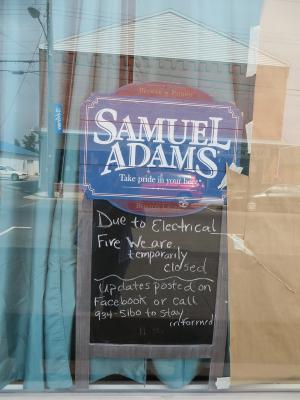 SAMUEL
ADAMS
Take pride in your beer.
Due to Electrical
Fire We are
temporarily
closed
updates posted on
Facebook or call
934-5160 to stay
informed